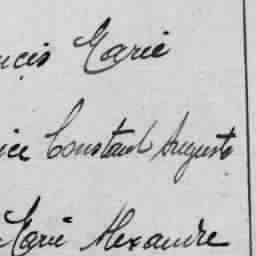 ncis Marie
ice Constant Auguste
Marie Alexandre